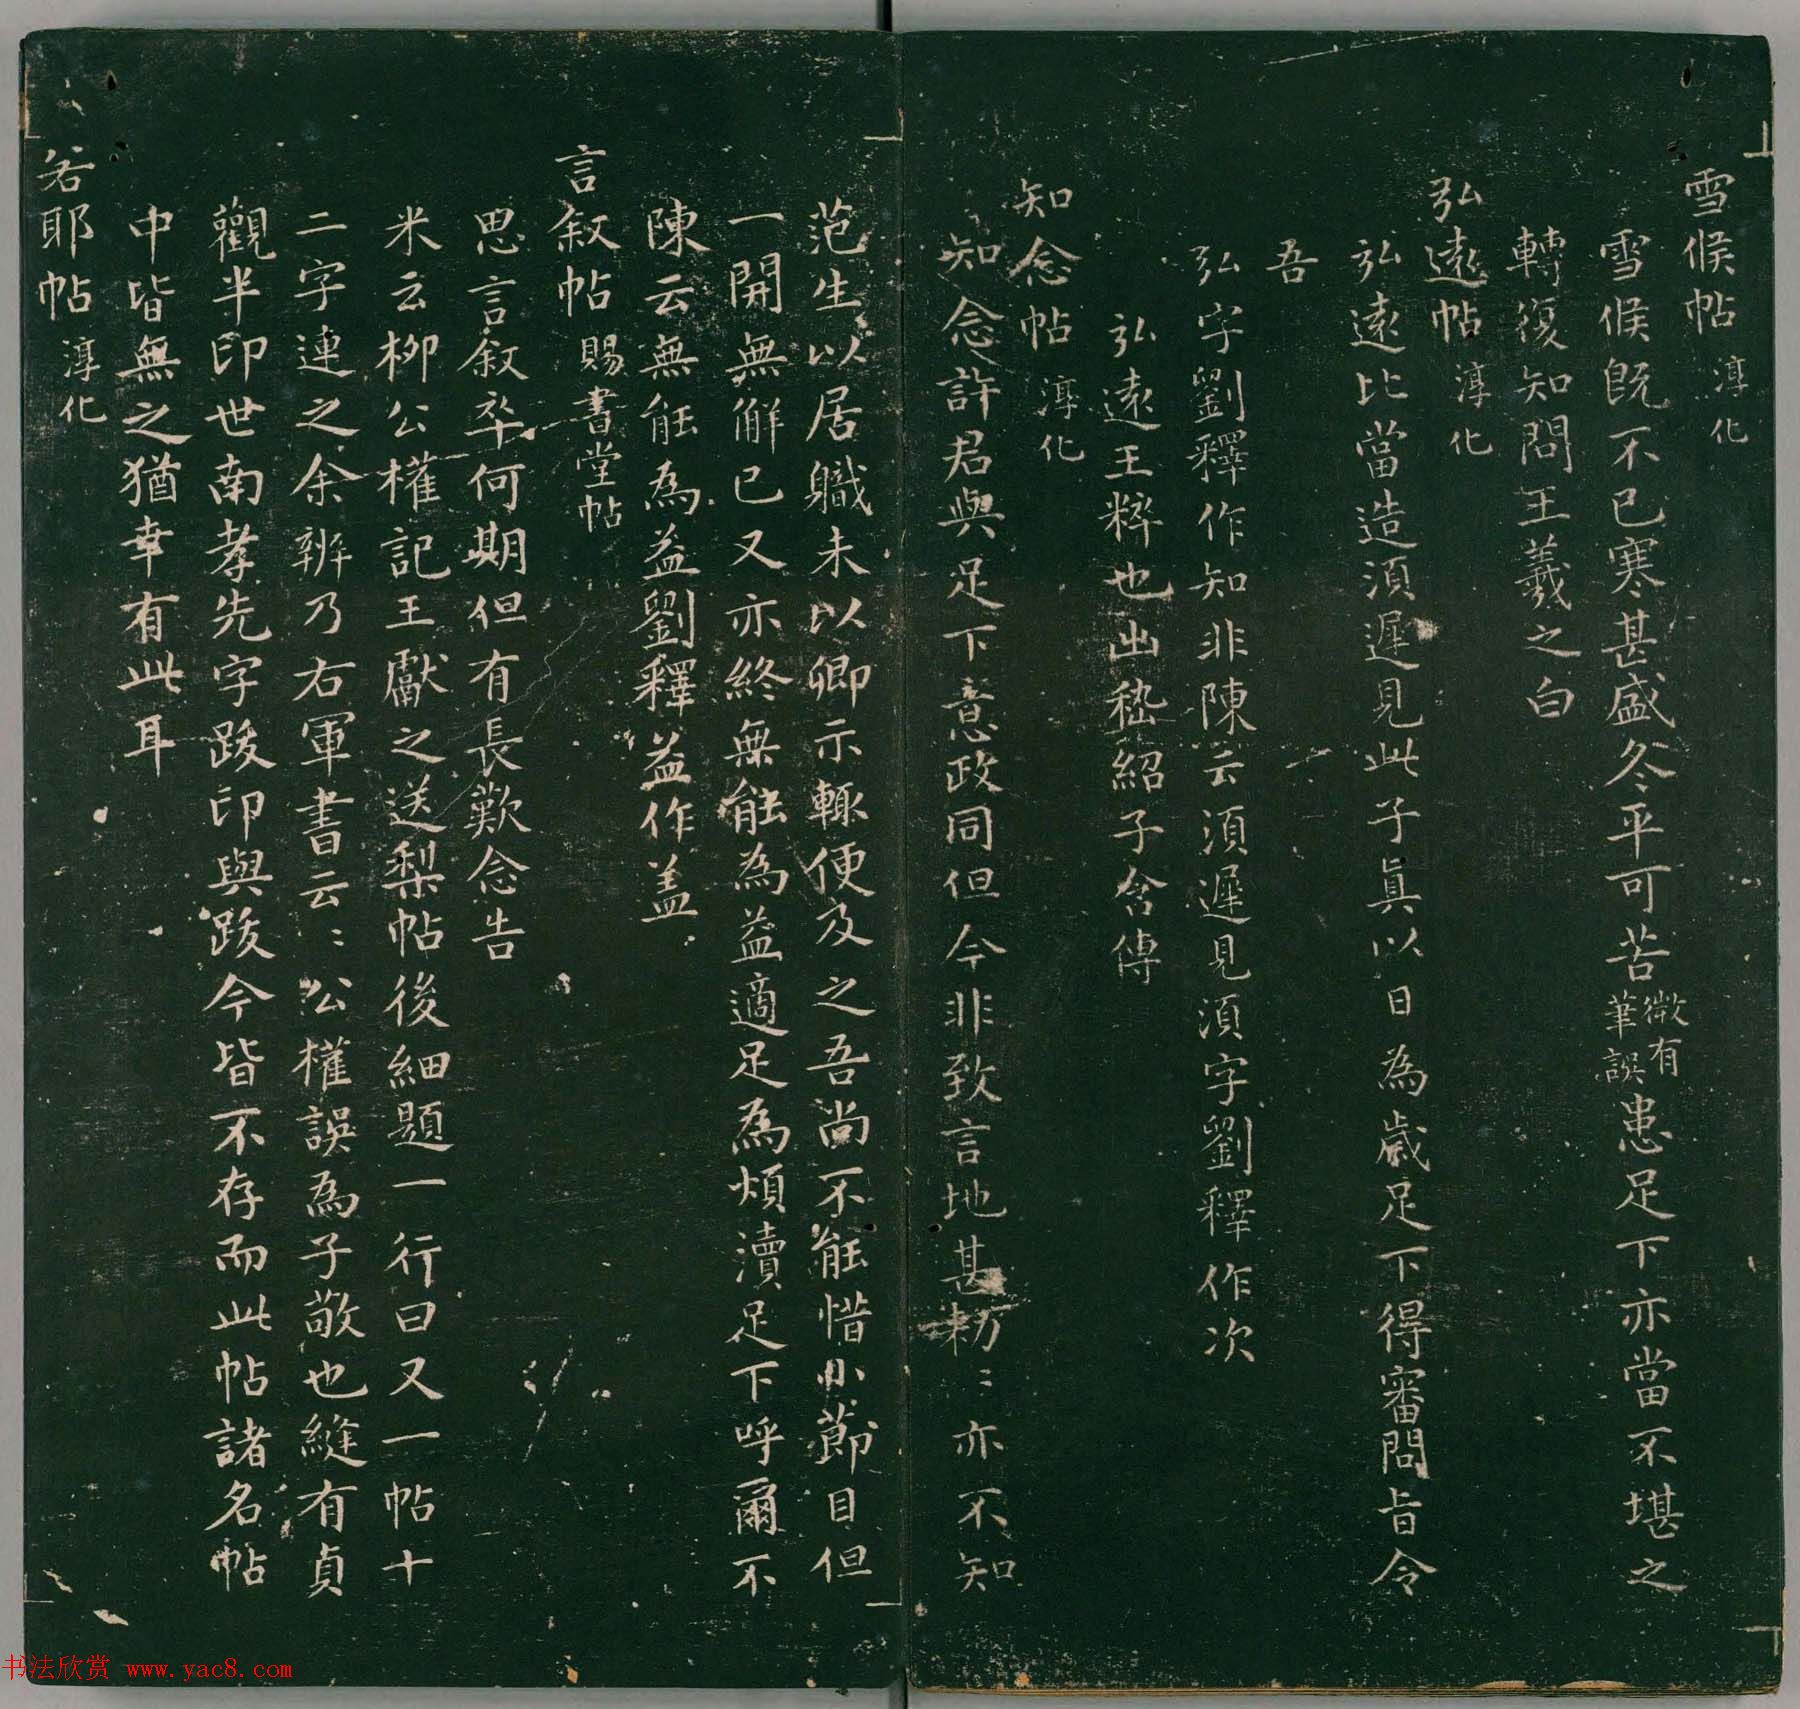 雪候帖 淳化
雪候既不已寒甚盛冬平可苦微有筆誤患足下亦當不堪之
轉復知問王羲之白
弘遠帖 淳化
弘遠比當造須遲見此子真以日為歲足下得審問旨令
吾
弘字劉釋作知非陳云須遲見須字劉釋作次
弘遠王粹也出嵇紹子含傳
知念帖 淳化
知念許君與足下意政同但今非致言地甚勑〻亦不知
范生以居職未以卿示輒便及之吾尚不能惜小節目但
一開無解已又亦終無能為益適足為煩瀆足下呼爾不
陳云無能為益劉釋益作盖
言敘帖 賜書堂帖
思言敘卒何期但有長歎念告
米云柳公權記王獻之送梨帖後細題一行曰又一帖十
二字連之余辨乃右軍書云〻公權誤為子敬也縫有貞
觀半印世南孝先字跋印與跋今皆不存而此帖諸名帖
中皆無之猶幸有此耳
若耶帖 淳化
书法欣赏 www.yac8.com